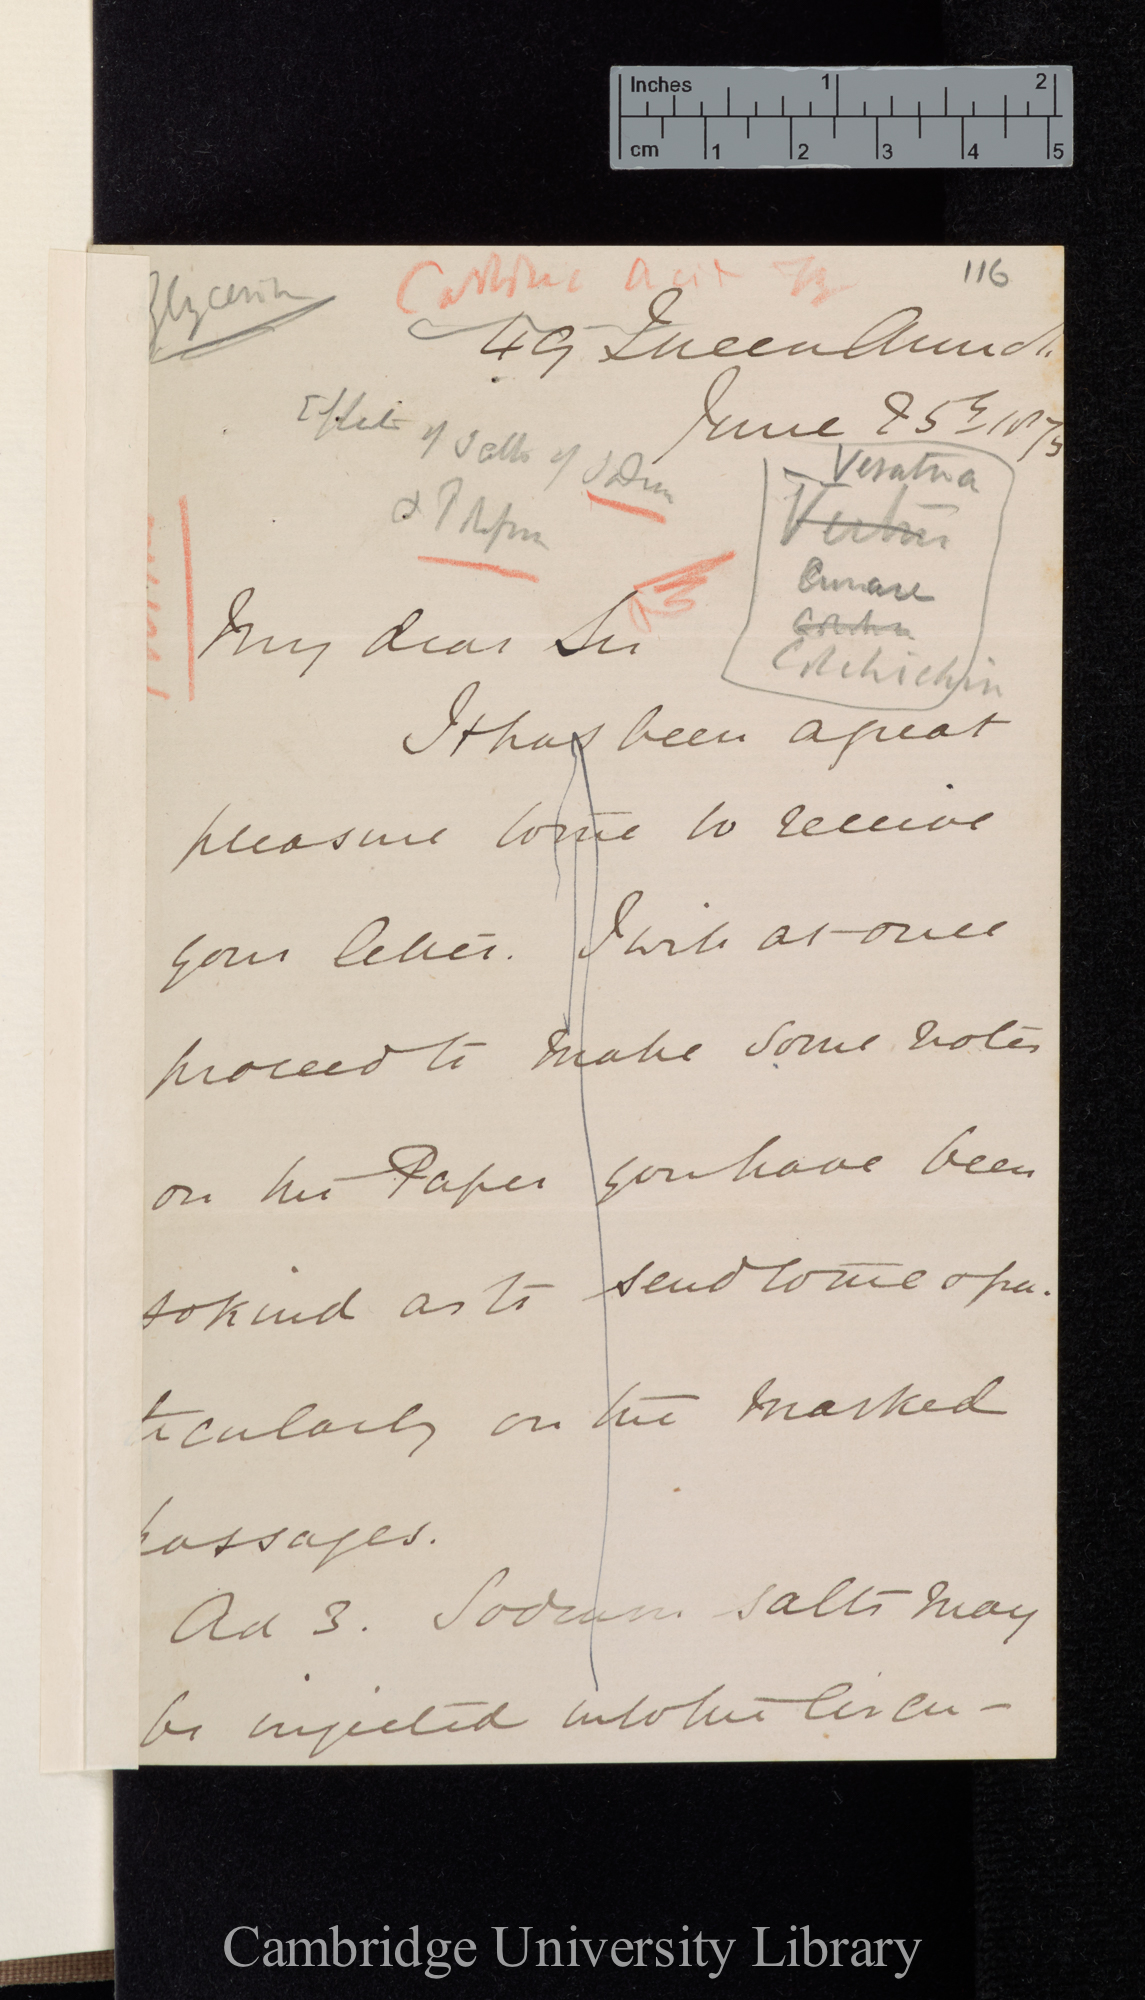 Inches 1 2
cm 1 2 3 4 5
116
Glycerin
Carbolic Acid
49 Queen Anne St.
June 25th 1873
Effects of Salts of Sodium
& Potassium
Veratria
Curare
Colchichin
My dear Sir
It has been a great
pleasure to me to receive
your letter. I will at once
proceed to make some notes
on the Paper you have been
so kind as to send to me & par-
ticularly on the marked
passages.
Ad 3. Sodium salts may
be injected into the Circu-
Cambridge University Library